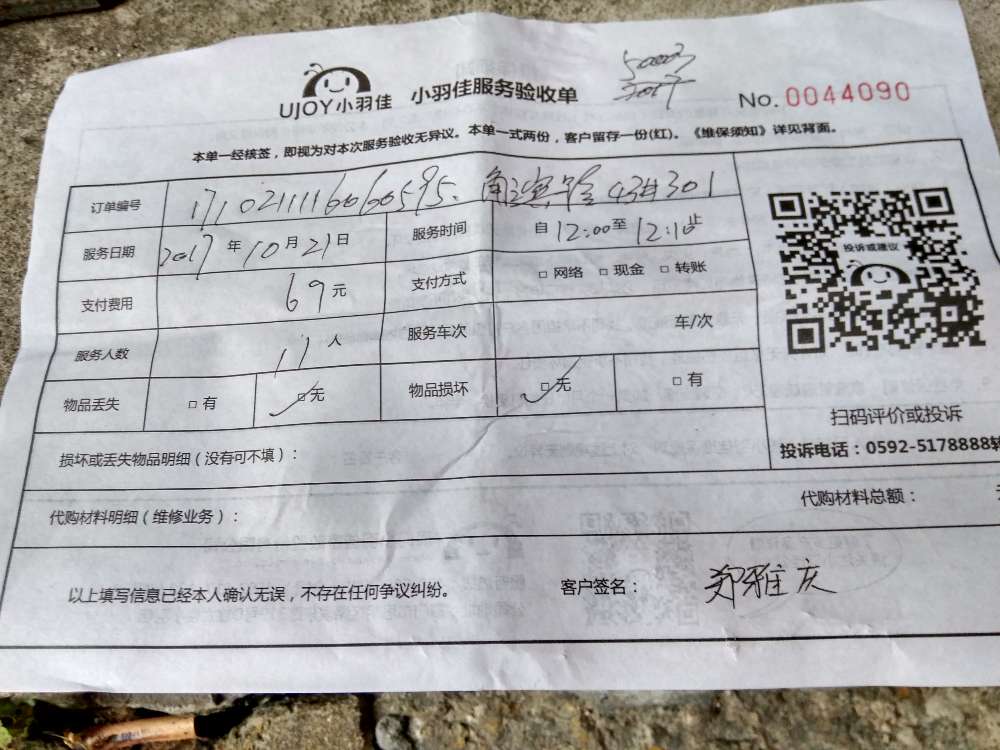 UJOY小羽佳 小羽佳服务验收单
No.0044090
本单一经核签，即视为对本次服务验收无异议。本单一式两份，客户留存一份(红)。《维保须知》详见背面。
订单编号 43#301
服务日期 2017年10月21日 服务时间 自12:00至12:10止
支付费用 69元 支付方式 □网络 □现金 □转账
服务人数 人 服务车次 车/次
物品丢失 □有 □无 物品损坏 □无 □有
投诉或建议
扫码评价或投诉
投诉电话：0592-5178888转
损坏或丢失物品明细（没有可不填）：
代购材料明细（维修业务）： 代购材料总额：
以上填写信息已经本人确认无误，不存在任何争议纠纷。 客户签名： 郑雅庆